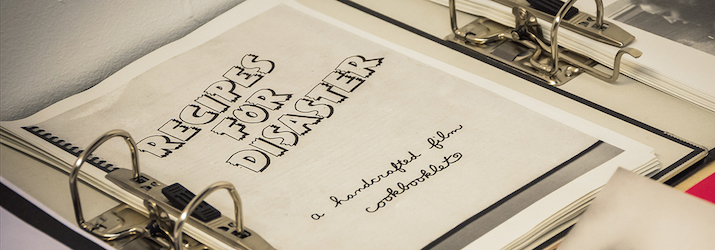 RECIPES
FOR
DISASTER
a handcrafted film
cookbooklet